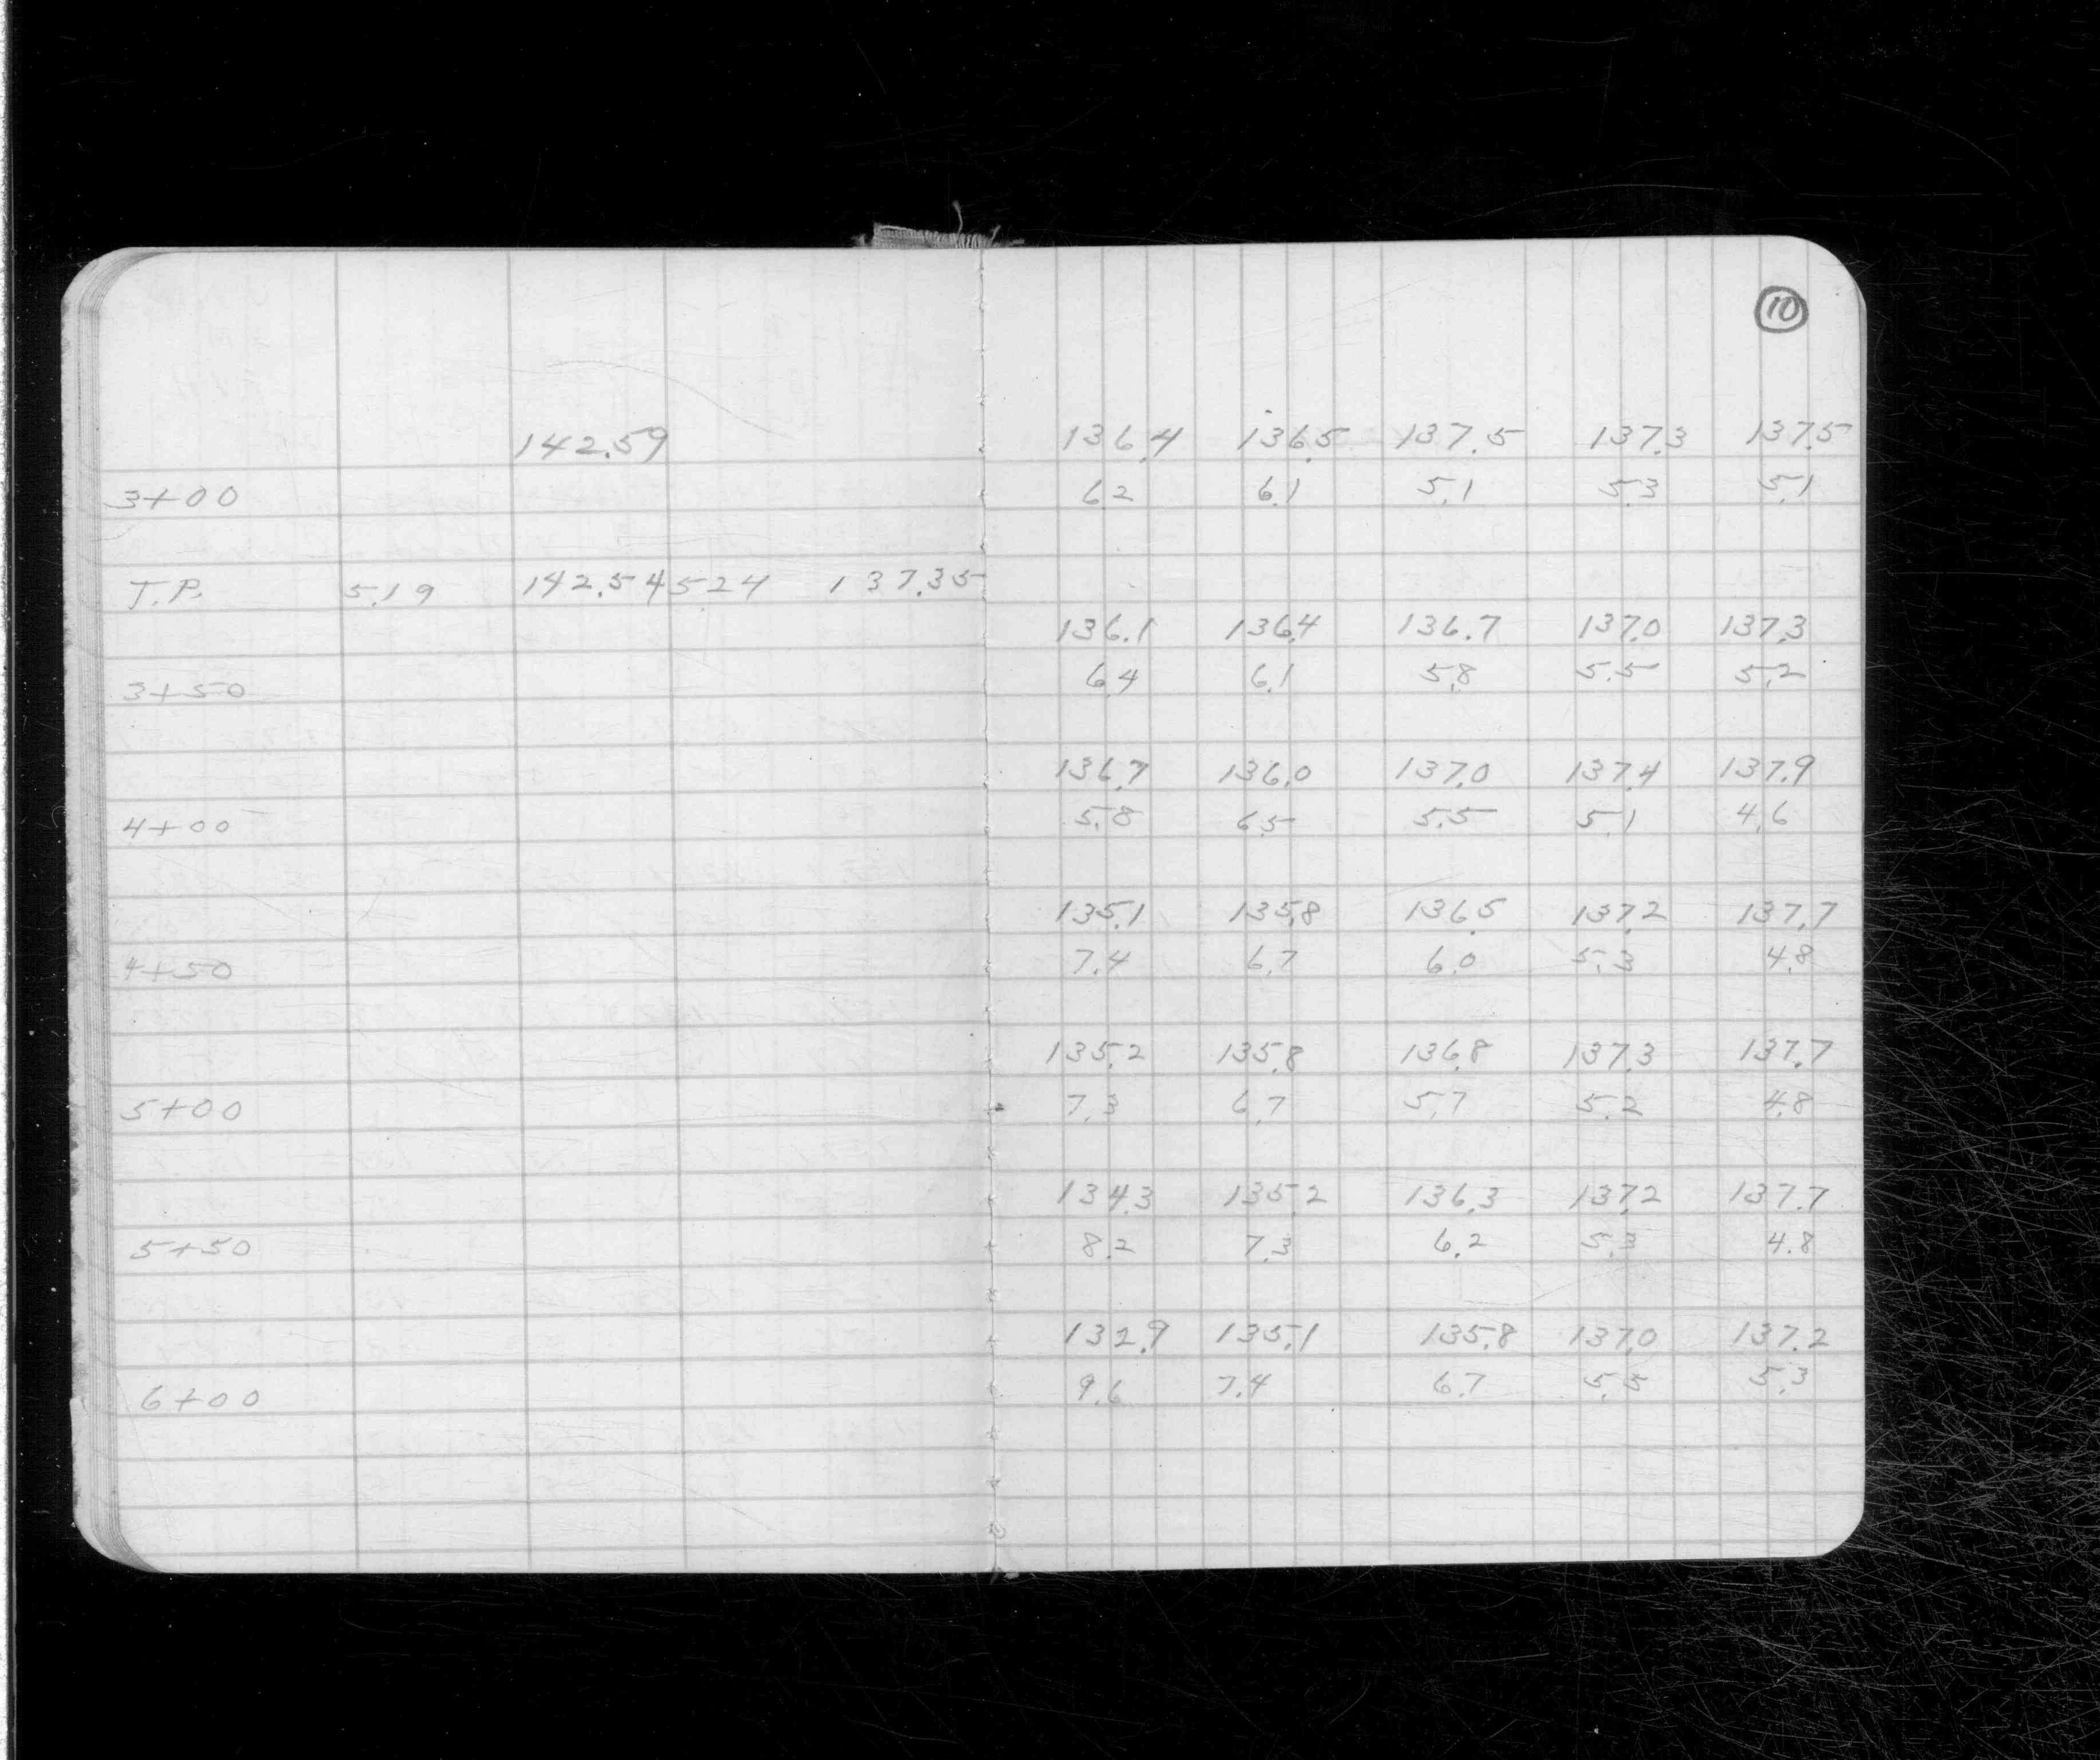 10
142.59 136.4 136.5 137.5 137.3 137.5
3+00 6.2 6.1 5.1 5.3 5.1
T.P. 5.19 142.54 5.24 137.35
136.1 136.4 136.7 137.0 137.3
3+50 6.4 6.1 5.8 5.5 5.2
136.7 136.0 137.0 137.4 137.9
4+00 5.8 6.5 5.5 5.1 4.6
135.1 135.8 136.5 137.2 137.7
4+50 7.4 6.7 6.0 5.3 4.8
135.2 135.8 136.8 137.3 137.7
5+00 7.3 6.7 5.7 5.2 4.8
134.3 135.2 136.3 137.2 137.7
5+50 8.2 7.3 6.2 5.3 4.8
132.9 135.1 135.8 137.0 137.2
6+00 9.6 7.4 6.7 5.5 5.3